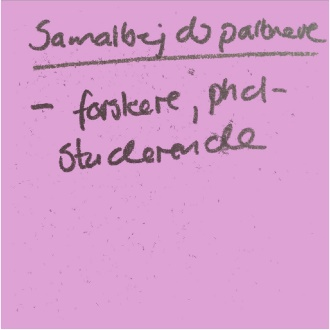 Samalbej ds partnere
- forskere, phd-
studerende